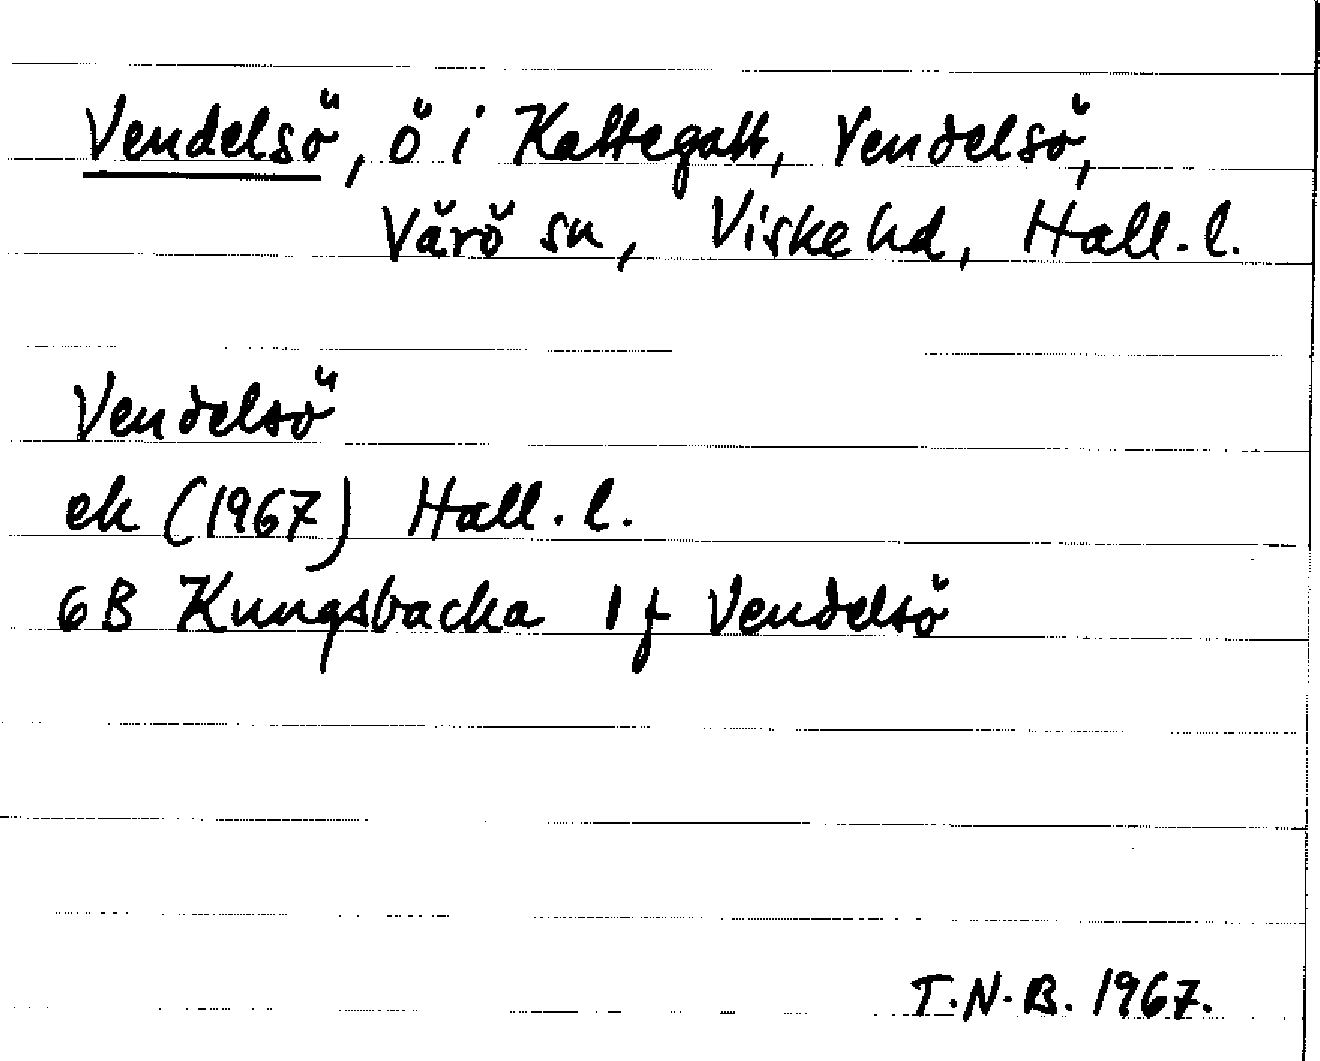 Vendelsö, ö i Kattegatt, Vendelsö,
Värö sn, Viske hd, Hall. l.
Vendelsö
ek (1967) Hall. l.
6B Kungsbacka 1 f Vendelsö
T.N.B. 1967.